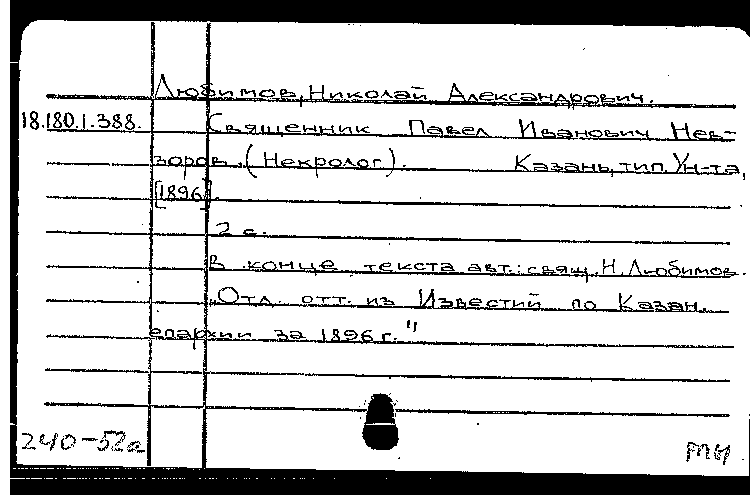 Любимов, Николай Александрович.
18.180.1.388. Священник Павел Иванович Нев-
зоров. (Некролог). Казань, тип. Ун-та,
[1896].
2 с.
В конце текста авт.: свящ. Н. Любимов.
„Отд. отт. из Известий по Казан.
епархии за 1896 г."
240-52а